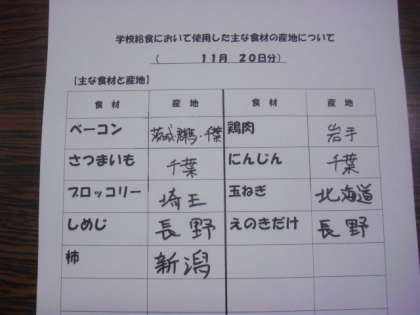 学校給食において使用した主な食材の産地について
( 11月 20日分)
【主な食材と産地】
食材 産地 食材 産地
ベーコン 茨城・群馬・千葉 鶏肉 岩手
さつまいも 千葉 にんじん 千葉
ブロッコリー 埼玉 玉ねぎ 北海道
しめじ 長野 えのきだけ 長野
柿 新潟